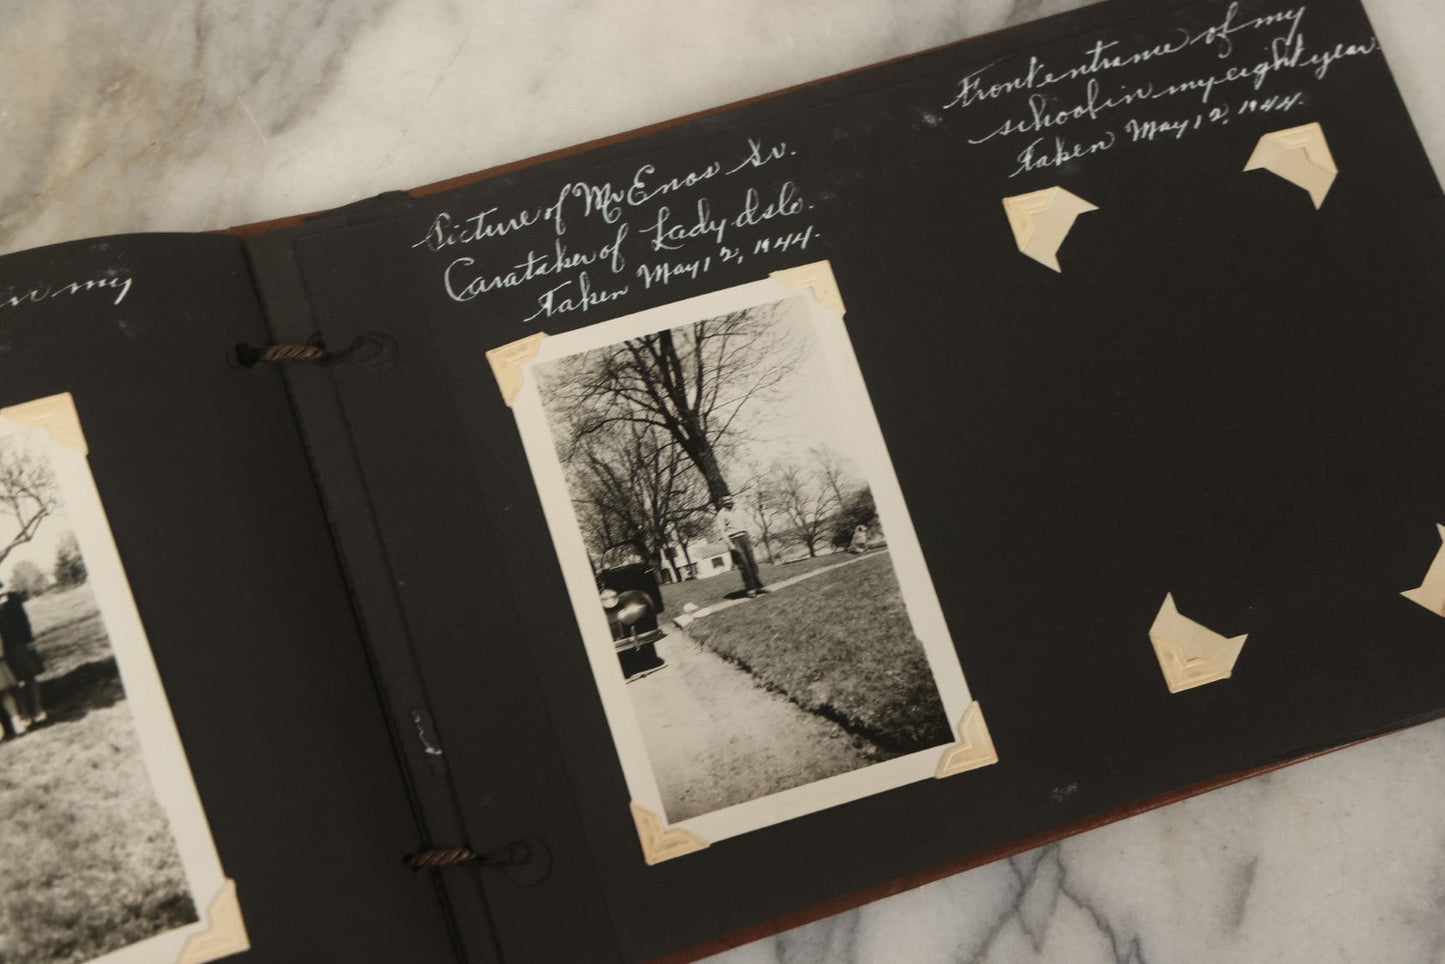 in my
Picture of Mr Enos Sr.
Carataker of Lady Isle.
Taken May 12, 1944.
Front entrance of my
school in my eight year.
Taken May 12, 1944.